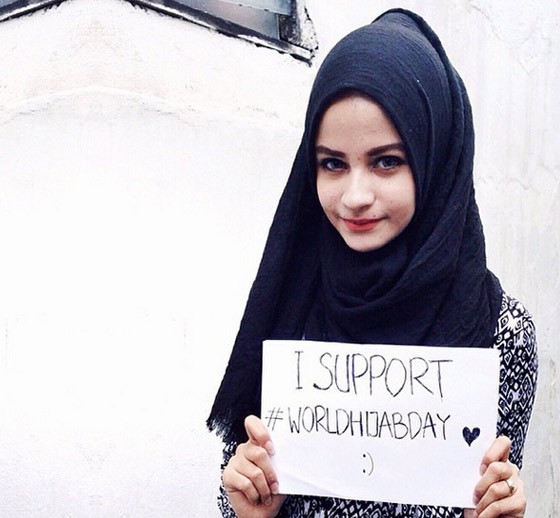 I SUPPORT
#WORLDHIJABDAY ♥
:)